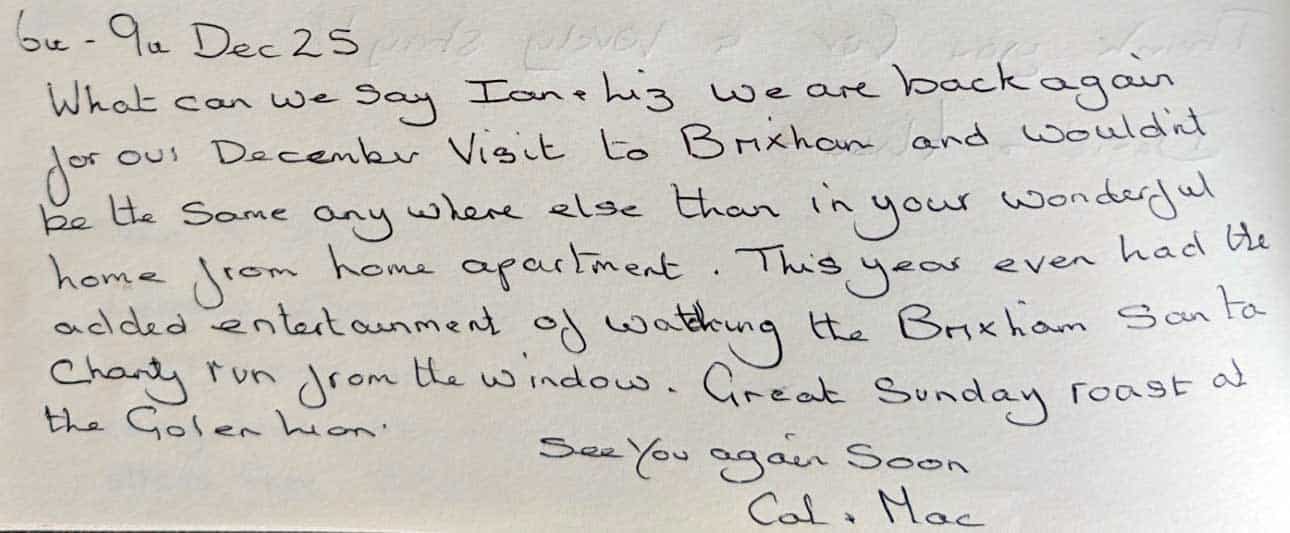 6th - 9th Dec 25
What can we say Ian & Liz we are back again
for our December Visit to Brixham and wouldn't
be the same any where else than in your wonderful
home from home apartment. This year even had the
added entertainment of watching the Brixham Santa
Charity run from the window. Great Sunday roast at
the Golen Lion.
See You again Soon
Cal & Mac